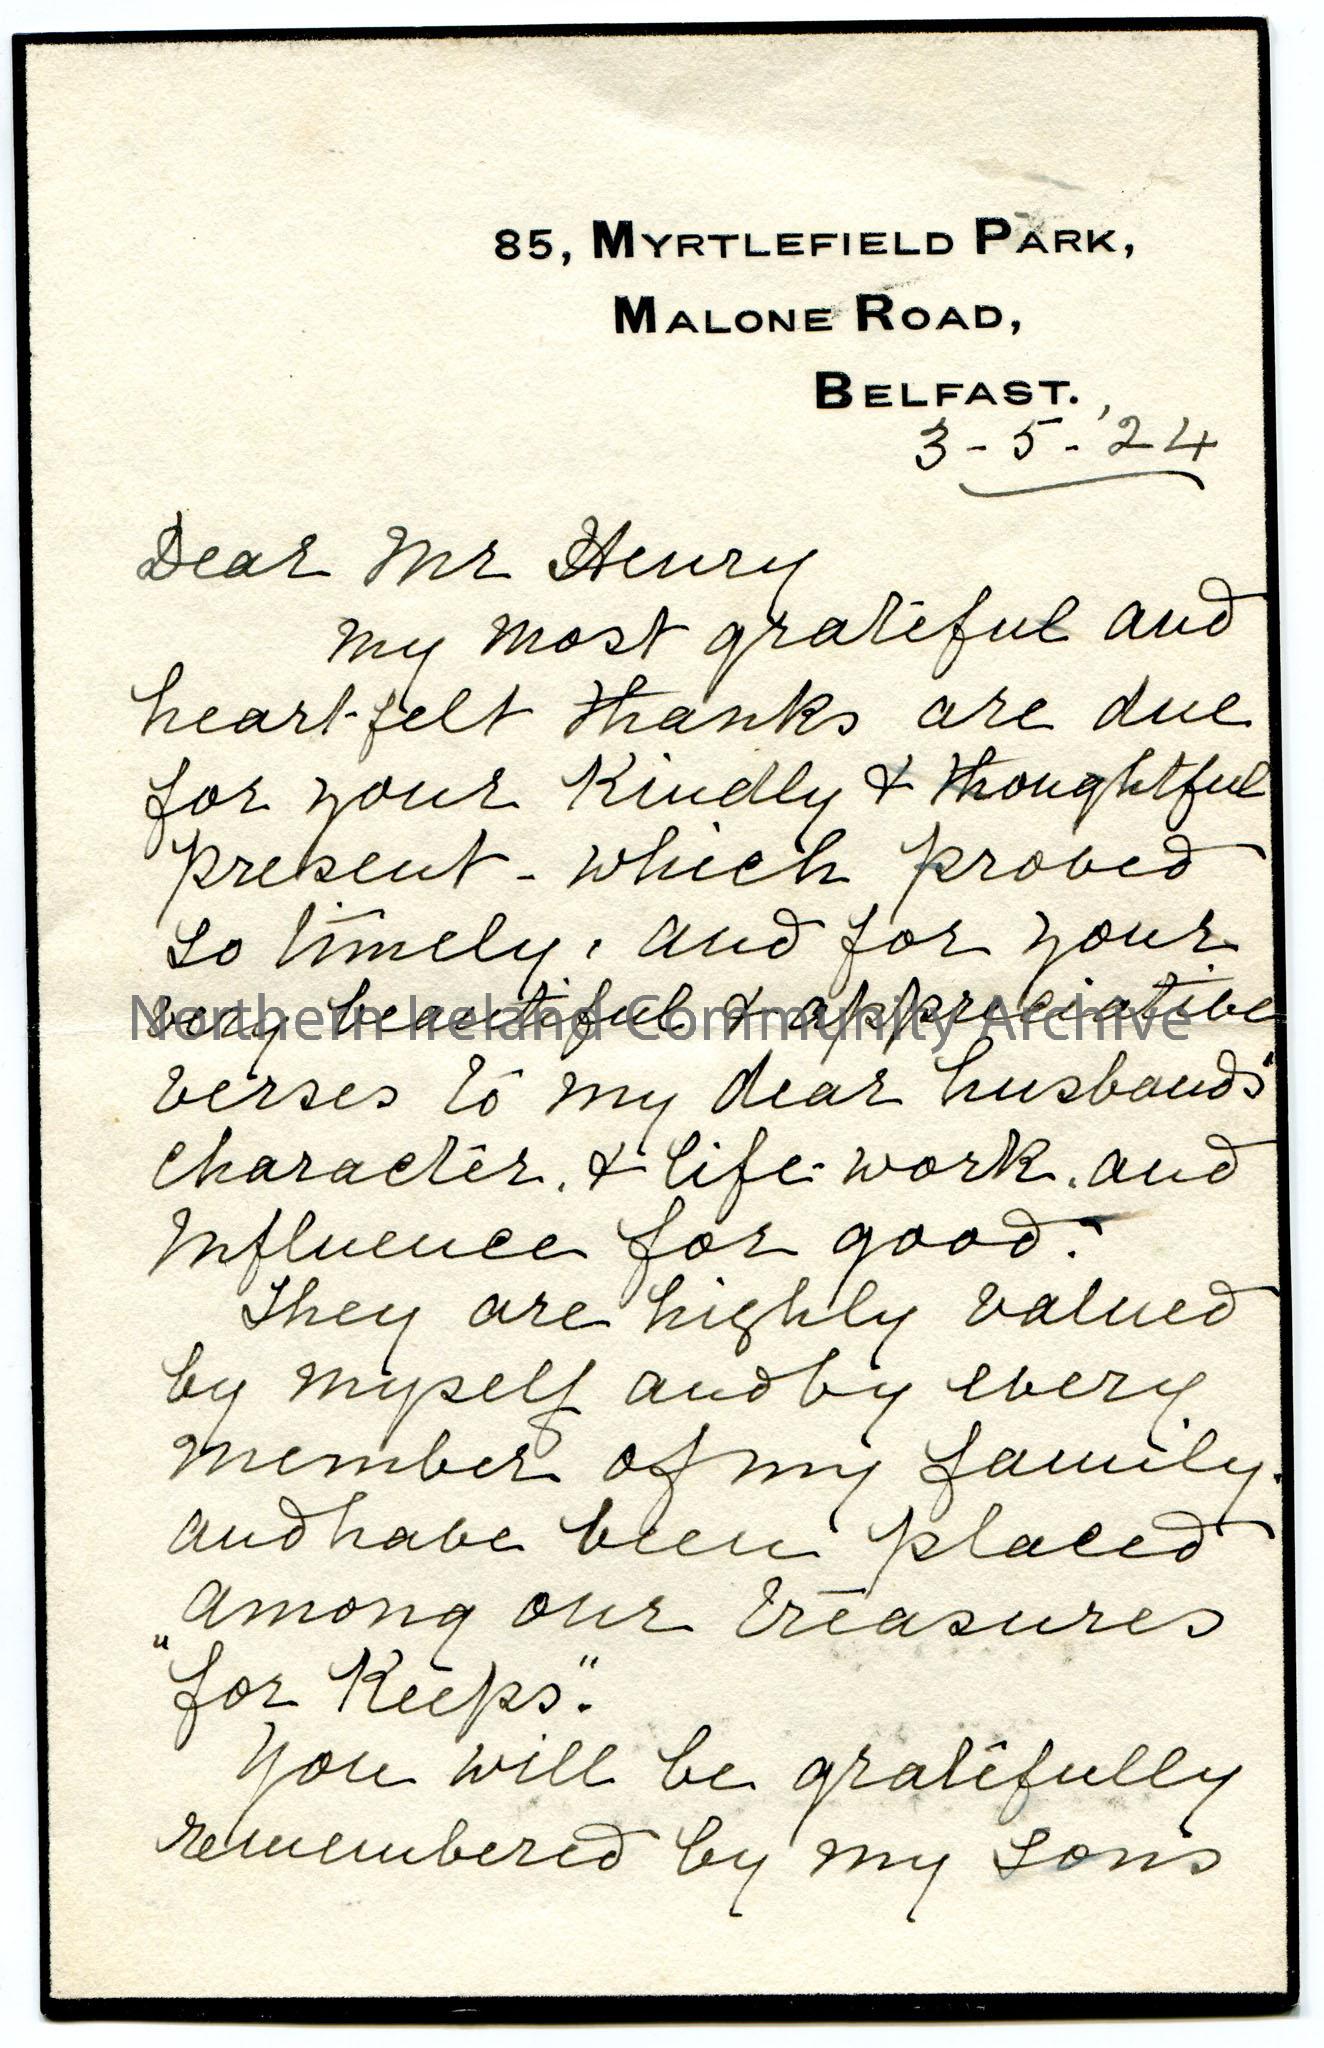 85, MYRTLEFIELD PARK,
MALONE ROAD,
BELFAST.
3-5-'24
Dear Mr Henry
My most grateful and
heart-felt thanks are due
for your kindly & thoughtful
present - which proved
so timely, and for your
very beautiful & appreciative
Northern Ireland Community Archive
verses to my dear husband's
character, & life-work, and
influence for good.
They are highly valued
by myself and by every
member of my family,
and have been placed
among our treasures
"for Keeps".
You will be gratefully
remembered by my sons